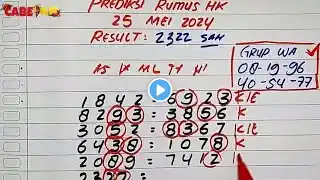 CABE
PREDIKSI RUMUS HK
25 MEI 2024
RESULT: 2322 SAH
GRUP WA
08-19-96
40-54-77
1842 = 6923 K/E
8293 = 3856 K
3052 = 8367 K/E
6438 = 1078 K
2089 = 7412
2327 =